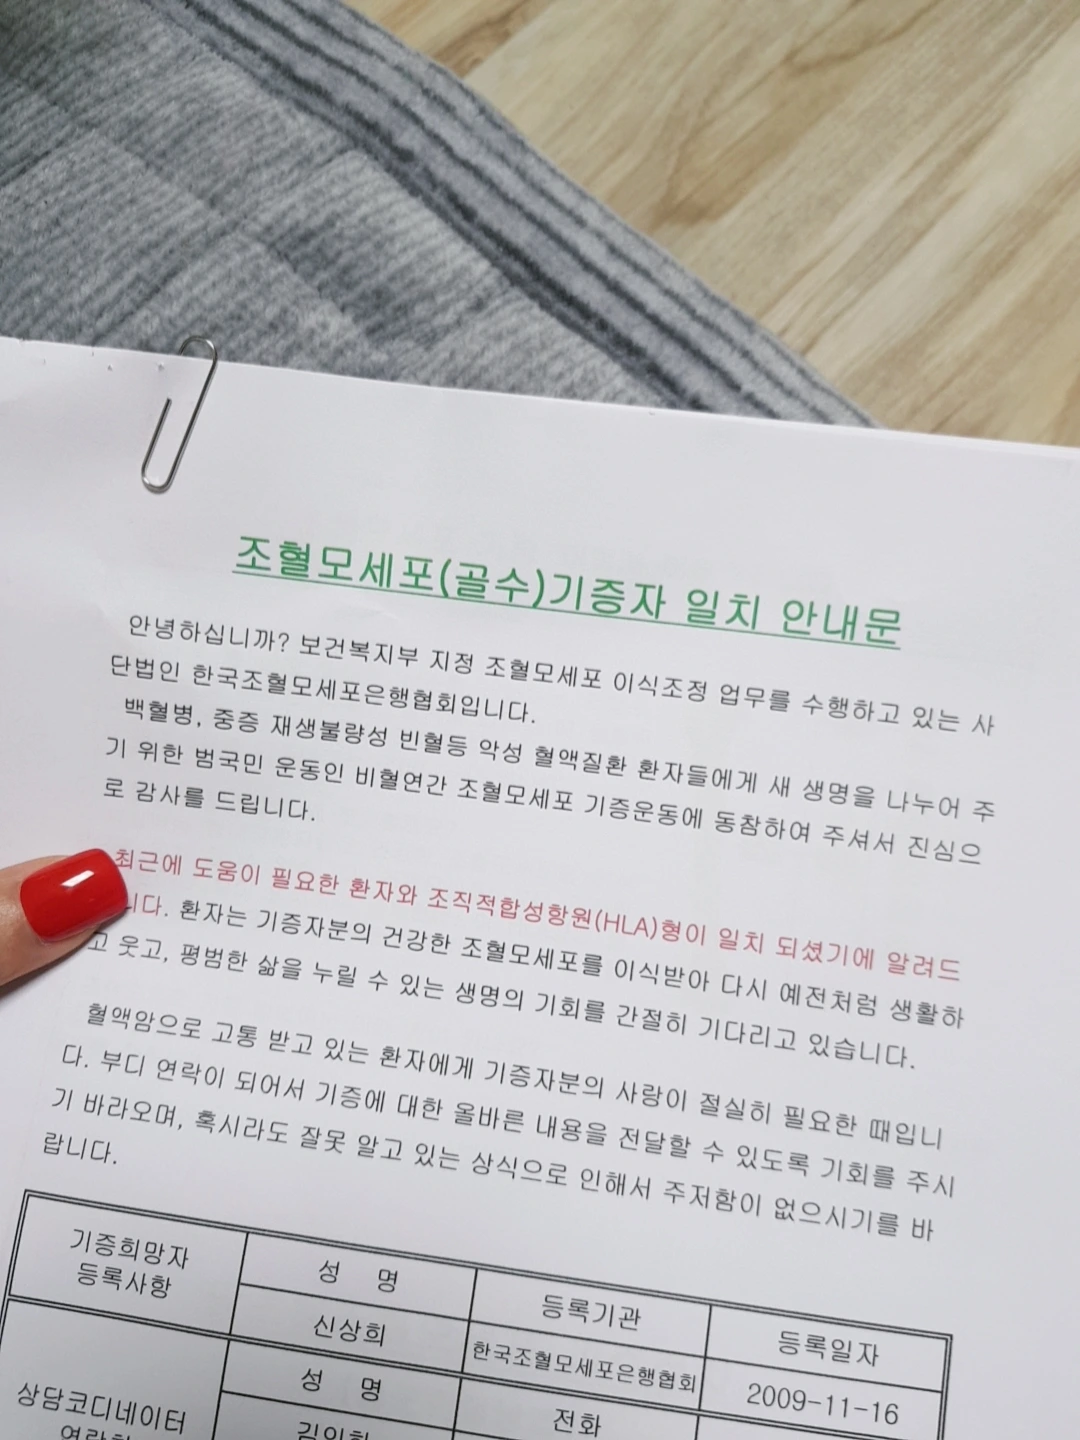 조혈모세포(골수)기증자 일치 안내문
안녕하십니까? 보건복지부 지정 조혈모세포 이식조정 업무를 수행하고 있는 사
단법인 한국조혈모세포은행협회입니다.
백혈병, 중증 재생불량성 빈혈등 악성 혈액질환 환자들에게 새 생명을 나누어 주
기 위한 범국민 운동인 비혈연간 조혈모세포 기증운동에 동참하여 주셔서 진심으
로 감사를 드립니다.
최근에 도움이 필요한 환자와 조직적합성항원(HLA)형이 일치 되셨기에 알려드
니다. 환자는 기증자분의 건강한 조혈모세포를 이식받아 다시 예전처럼 생활하
고 웃고, 평범한 삶을 누릴 수 있는 생명의 기회를 간절히 기다리고 있습니다.
혈액암으로 고통 받고 있는 환자에게 기증자분의 사랑이 절실히 필요한 때입니
다. 부디 연락이 되어서 기증에 대한 올바른 내용을 전달할 수 있도록 기회를 주시
기 바라오며, 혹시라도 잘못 알고 있는 상식으로 인해서 주저함이 없으시기를 바
랍니다.
기증희망자
등록사항
성 명
등록기관
등록일자
신상희
한국조혈모세포은행협회
2009-11-16
상담코디네이터
성 명
전화